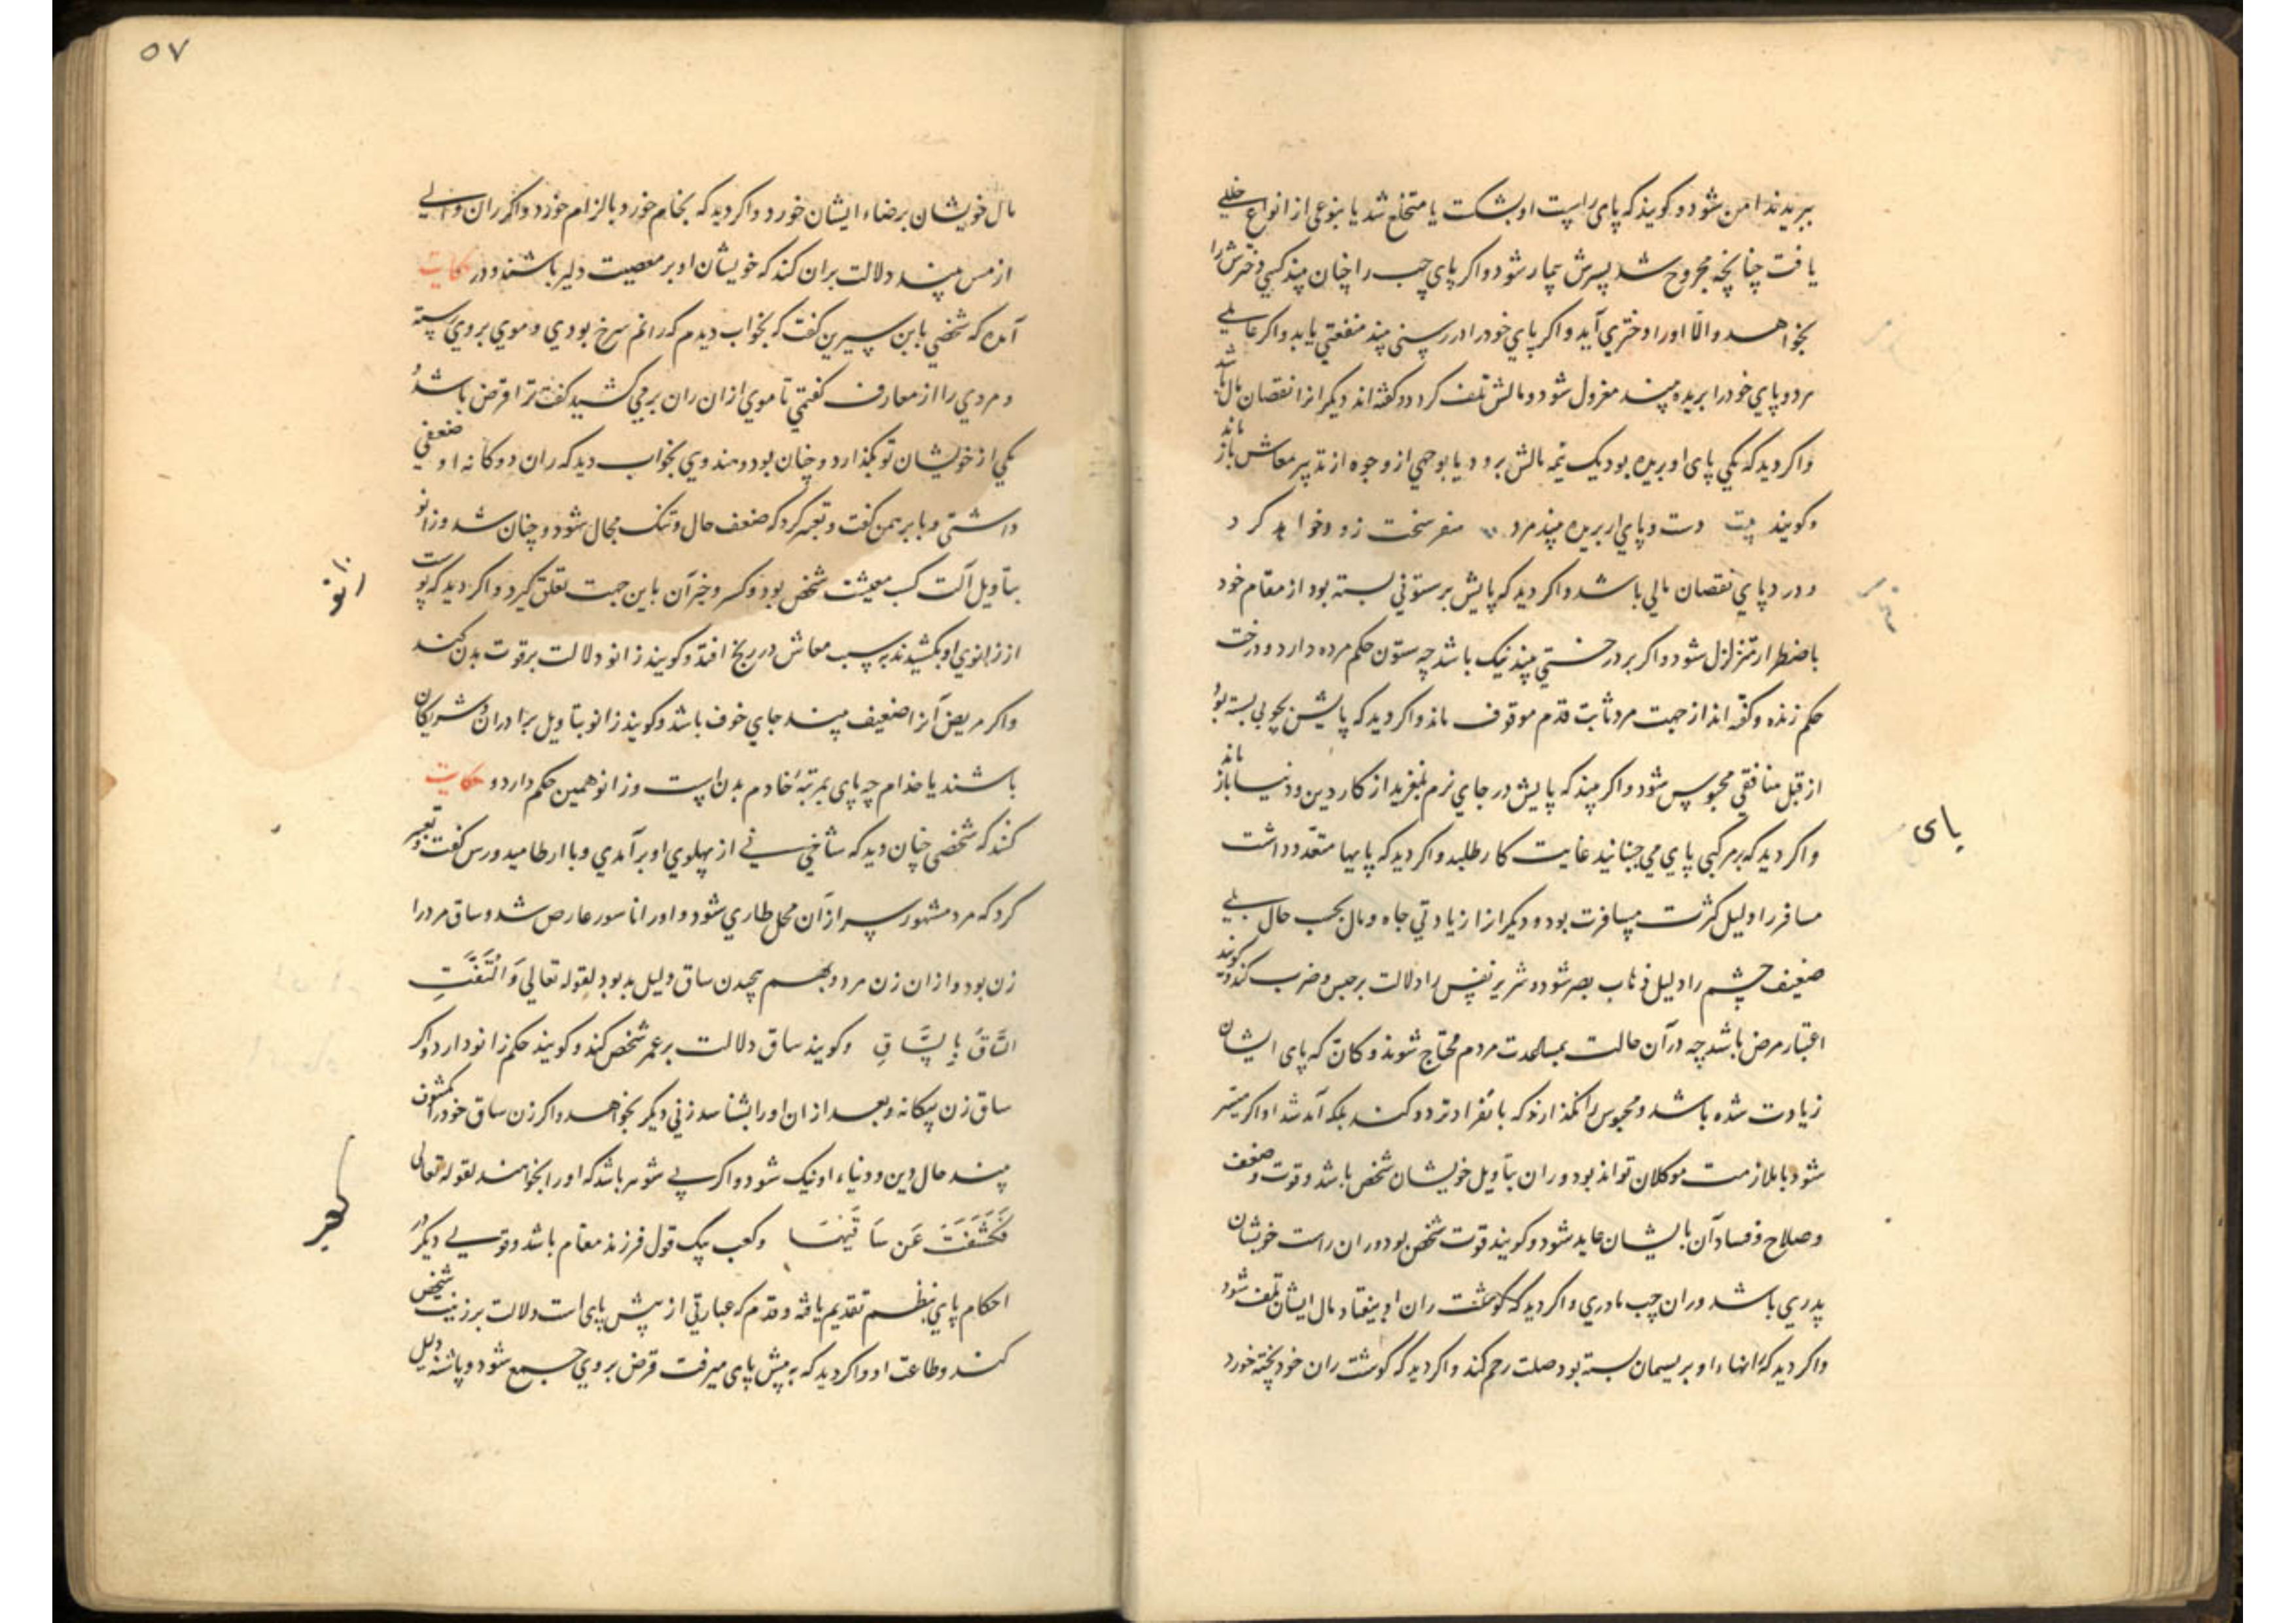 ببریدند امن شود و کویند که پای راست او بشکست یا متخلع شد یا بنوعی از انواع خللی
یافت چنانچه مجروح شد پسرش بیمار شود و اکر پای چپ را چنان بیند کسی دخترش را
بخواهد و الّا او را دختری آید و اکر پای خود را در رسنی بیند منفعتی یابد و اکر عاملی
هر دو پای خود را بریده بیند معزول شود و مالش تلف کردد و کفته‌اند دیکر انرا نقصان مال باشد
واکر دید که یکی پای او بریده بود یک نیمه مالش برود یا بوجهی از وجوه از تدبیر معاش باز ماند
وکویند بیت دست و پای ار بریده بیند مرد سفر سخت زود خواهد کرد
و درد پای نقصان مالی باشد و اکر دید که پایش بر ستونی بسته بود از مقام خود
باضطرار متزلزل شود و اکر بر درختی بیند نیک باشد چه ستون حکم مرده دارد و درخت
حکم زنده و کفته‌اند از جهت مرد ثابت قدم موقوف ماند و اکر دید که پایش بچوبی بسته بود
از قبل منافقی محبوس شود و اکر بیند که پایش در جای نرم بلغزید از کار دین و دنیا باز ماند
واکر دید که بر مرکبی پای می جنبانید غایت کار طلبد و اکر دید که پایها متعدد داشت
مسافر را دلیل کثرت مسافرت بود و دیکر انرا زیادتی جاه و مال بحسب حال بلی
ضعیف چشم را دلیل ذهاب بصر شود و شریر نفس را دلالت بر حبس و ضرب کند و کویند
اعتبار مرض باشد چه در آن حالت بمساعدت مردم محتاج شوند و کانّه که پای ایشان
زیادت شده باشد و محبوس را نکذارند که بانفراد تردد کند بلکه آمد شد او اکر میسّر
شود با ملازمت موکلان تواند بود و ران بتأویل خویشان شخص باشد و قوت و ضعف
وصلاح و فساد آن بایشان عاید شود و کویند قوت شخص بود و ران راست خویشان
پدری باشد و ران چپ مادری و اکر دید که کوشت ران او بیفتاد مال ایشان تلف شود
واکر دید که رانهاء او بریسمان بسته بود صلت رحم کند و اکر دید که کوشت ران خود پخته خورد
پای
۵۷
مال خویشان برضاء ایشان خورد و اکر دید که بخام خورد بالزام خورد و اکر ران و سالی
از مس بیند دلالت بران کند که خویشان او بر معصیت دلیر باشند و در حکایت
آمده که شخصی بابن سیرین کفت که بخواب دیدم که رانم سرخ بودی و موی بر وی رسته
و مردی را از معارف کفتمی تا موی از ان ران بر می کشید کفت ترا قرض باشد و
یکی از خویشان تو بکذارد و چنان بود و هندوی بخواب دید که ران دوکانه او ضعفی
داشتی و با برهمن کفت و تعبیر کرد که ضعف حال و تنک مجال شود و چنان شد و زانو
بتأویل آلت کسب معیشت شخص بود و کسر و جبر آن باین جهت تعلق کیرد و اکر دید که پوست
از زانوی او بکشیدند بسبب معاش در رنج افتد و کویند زانو دلالت بر قوت بدن کند
واکر مریض آنرا ضعیف بیند جای خوف باشد و کویند زانو بتأویل برادران و شریکان
باشند یا خدام چه پای بمرتبهٔ خادم بدن است و زانو همین حکم دارد و حکایت
کنند که شخصی چنان دید که شاخی نی از پهلوی او برآمدی و با ارطامیدورس کفت و تعبیر
کرد که مرد مشهور پسر از آن محل طاری شود و او را ناسور عارض شد و ساق مرد را
زن بود و از ان زن مرد و بهم پیچیدن ساق دلیل بد بود لقوله تعالی وَالْتَفَّتِ
السَّاقُ بِالسَّاقِ وکویند ساق دلالت بر عمر شخص کند و کویند حکم زانو دارد و اکر
ساق زن بیکانه و بعد از ان او را بشناسد زنی دیکر بخواهد و اکر زن ساق خود را مکشوف
بیند حال دین و دنیاء او نیک شود و اکر بی شوهر باشد که او را بخواهند لقوله تعالی
فَكَشَفَتْ عَن سَاقَيْهَا وکعب بیک قول فرزند مقام باشد و قولی دیکر در
احکام پای بنظم تقدیم یافته و قدم که عبارتی از پیش پای است دلالت بر زینت شخص
کند و طاعت او و اکر دید که به پیش پای میرفت قرض بروی جمع شود و پاشنه دلیل
زانو